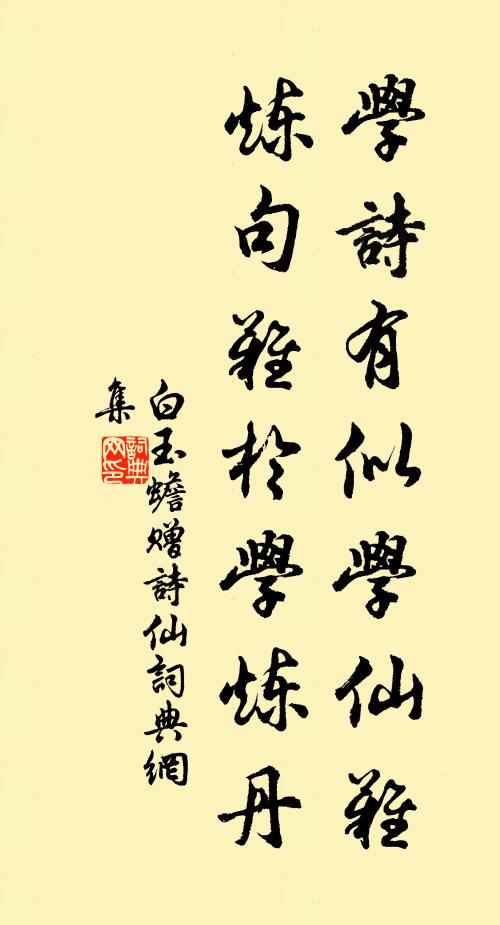 學詩有似學仙難
炼句難於學炼丹
白玉蟾贈詩仙詞典網
集
詞典
网印